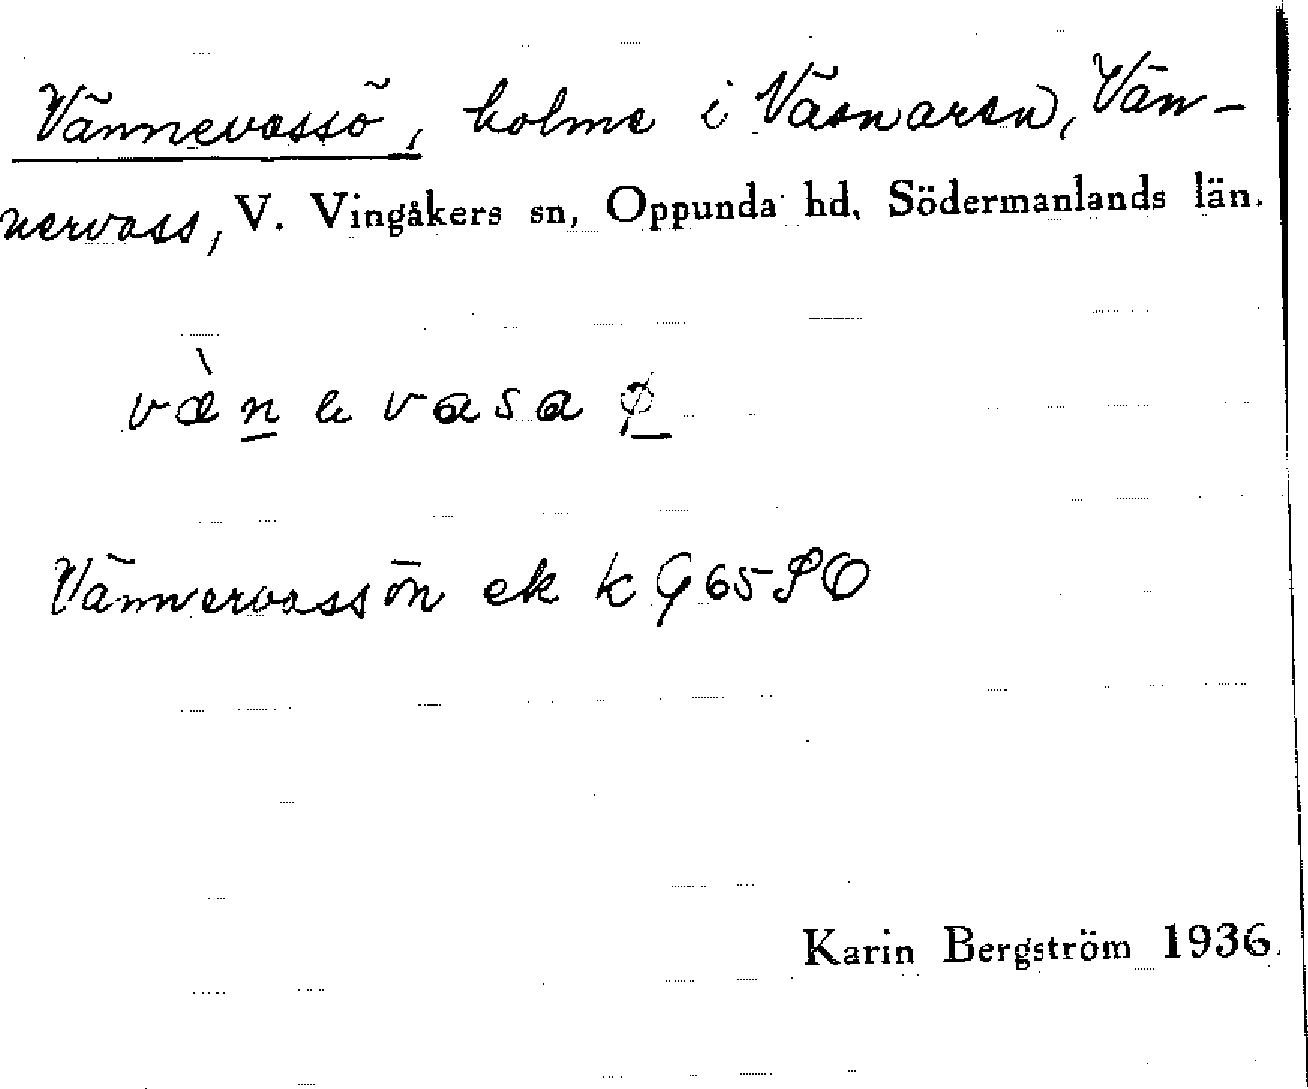 Vännevassö, holme i Väsnaren, Vän-
nervass, V. Vingåkers sn, Oppunda hd, Södermanlands län.
vænevasaø
Vännervassön ek k G65SO
Karin Bergström 1936.